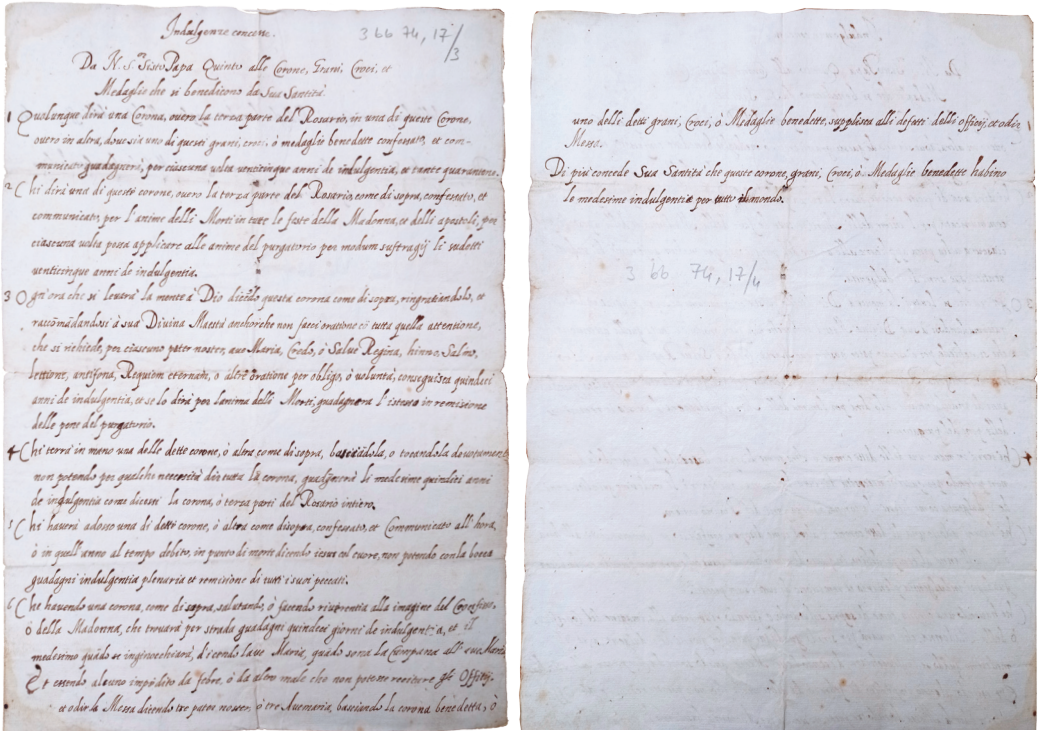 Indulgenze concesse.
3 66 74, 17/3
Da N. S.re Sisto Papa Quinto alle Corone, Grani, Croci, et
Medaglie che si benedicono da Sua Santità.
1 Qualunque dirà una Corona, overo la terza parte del Rosario, in una di queste Corone,
overo in altra, dove sia uno di questi grani, croci, ò medaglie benedette confessato, et com-
municato guadagnerà, per ciascuna volta venticinque anni de indulgentia, et tante quarantene.
2 Chi dirà una di questi corone, overo la terza parte del Rosario, come di sopra, confessato, et
communicato, per l'anime delli Morti in tutte le feste della Madonna, et delli apostoli, per
ciascuna volta possa applicare alle anime del purgatorio per modum suffragij li sudetti
venticinque anni de indulgentia.
3 Ogn'ora che si levarà la mente à Dio dicēdo questa corona come di sopra, ringratiandolo, et
raccomādandosi à sua Divina Maestà anchorche non facci oratione cō tutta quella attentione,
che si richiede, per ciascuno pater noster, ave Maria, Credo, ò Salve Regina, hinno, Salmo,
lettione, antifona, Requiem eternam, o altre oratione per obligo, ò voluntà, conseguisca quindeci
anni de indulgentia, et se lo dirà per l'anima delli Morti, guadagnera l'istesso in remissione
delle pene del purgatorio.
4 Chi terrà in mano una delle dette corone, ò altra come di sopra, basciādola, o toccandola devotament
non potendo per qualche necessità dir tutta la corona, guadagnerà li medesime quindici anni
de indulgentia come dicessi la corona, ò terza parti del Rosario intiero.
5 Chi haverà adosso una di detti corone, ò altra come disopra, confessato, et Communicato all'hora,
ò in quell'anno al tempo debito, in punto di morte dicendo iesus col cuore, non potendo con la bocca
guadagni indulgentia plenaria et remisione di tutti i suoi peccati.
6 Che havendo una corona, come di sopra, salutando, ò facendo riverentia alla imagine del Crocifisso,
ò della Madonna, che trovarà per strada guadagni quindeci giorni de indulgentia, et il
medesimo quādo se inginocchiarà, dicendo l'ave Maria, quādo sona la Campana all'ave Maria
Et essendo alcuno impedito da febre, ò da altro male che non potesse recitare gli Offitij,
et odir la Messa dicendo tre pater noster, ò tre Avemaria, basciando la corona benedetta, ò
uno delli detti grani, Croci, ò Medaglie benedette, supplisca alli defetti delli offitij, et odir
Messa.
Di più concede Sua Santità che queste corone, grani, Croci, ò Medaglie benedette habino
le medesime indulgentia per tutto il mondo.
3 66 74, 17/4